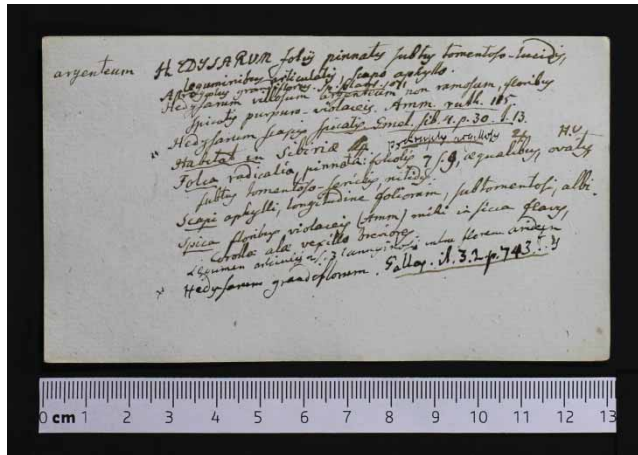 argenteum HEDYSARUM folijs pinnatis subtus tomentoso-lucidis,
leguminibus articulatis, scapo aphyllo.
Hedysarum villosum argenteum non ramosum, floribus
spicatis purpuro-violaceis. Amm. ruth. 115
Hedysarum scapis spicatis. Gmel. sib. 4. p. 30. t. 13.
Habitat in Sibiriae 24 H.U
Folia radicalia, pinnata: foliolis 7 s. 9, aequalibus, ovatis
subtus tomentoso-sericeis, nitidis
Scapi aphylli, longitudine foliorum, subtomentosi, albi.
Spica floribus violaceis (Amm) mihi in sicca flavis,
Corollae alae vexillo breviores
Legumen
Hedysarum grandiflorum. Pallas. it. 3. 2. p. 743.
0 cm 1 2 3 4 5 6 7 8 9 10 11 12 13